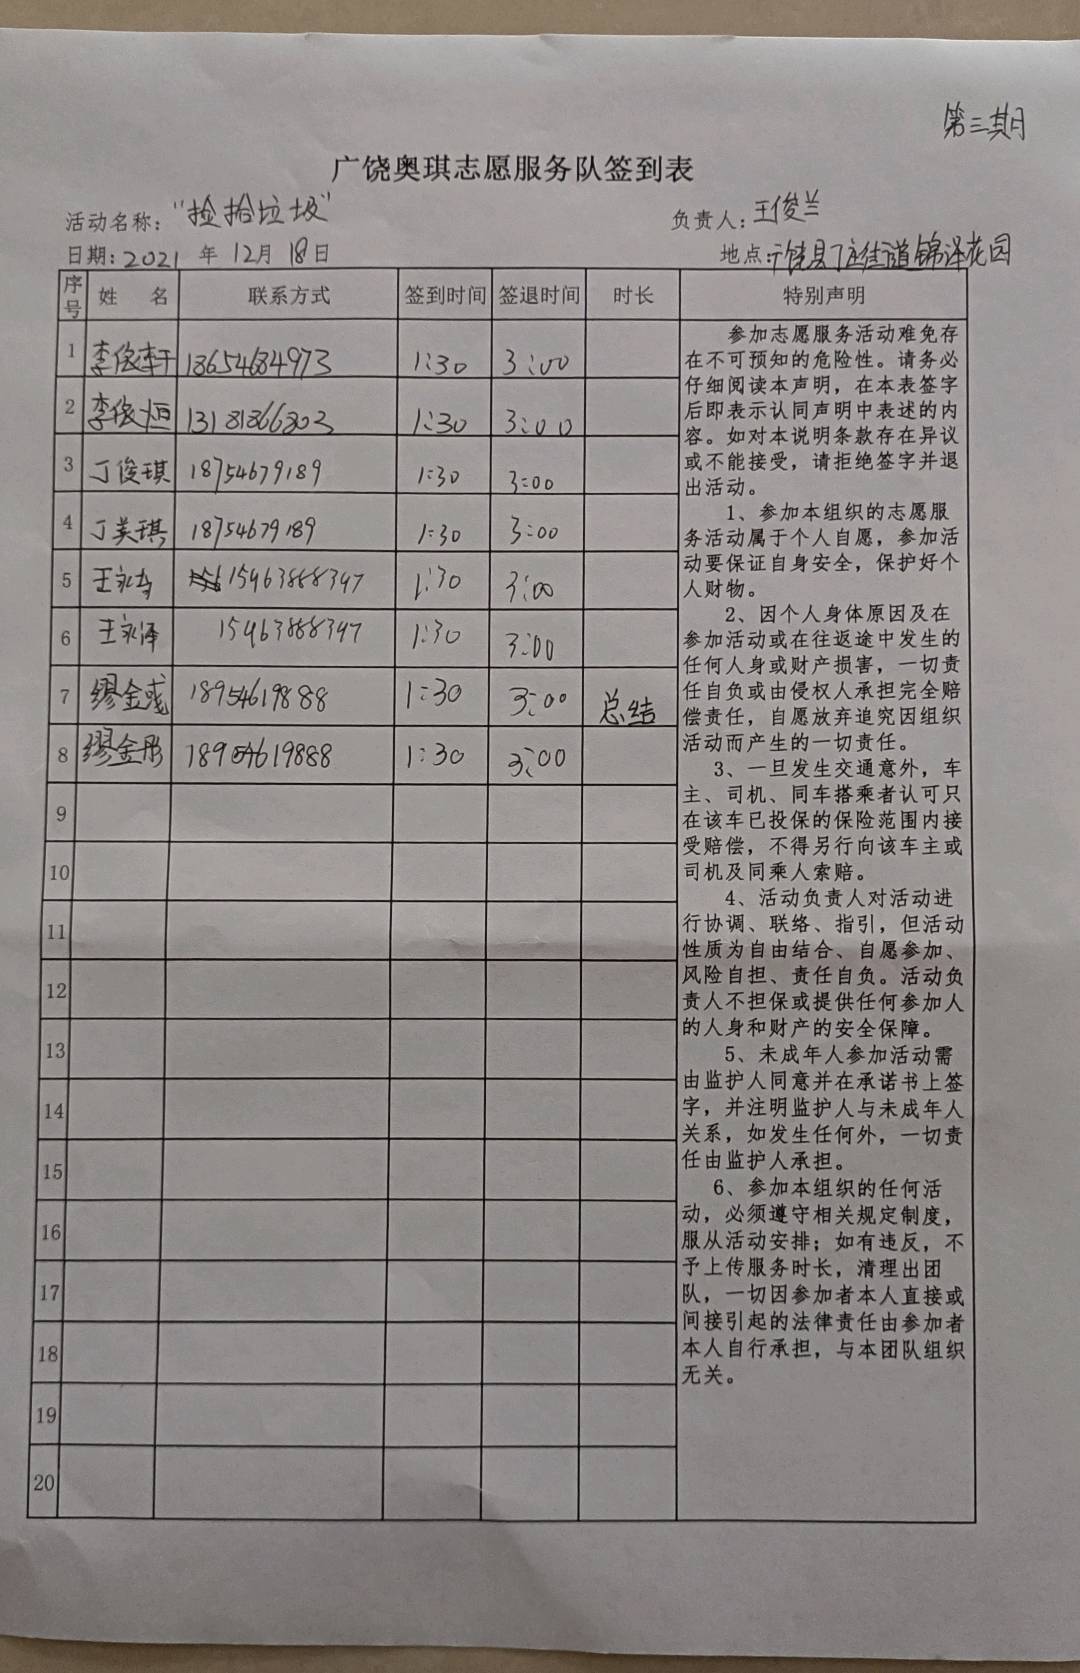 第三期
广饶奥琪志愿服务队签到表
活动名称：“捡拾垃圾” 负责人：王俊兰
日期：2021 年 12月 18日 地点：广饶县丁庄街道锦泽花园
序号 姓 名 联系方式 签到时间 签退时间 时长 特别声明
1 李俊轩 13654684973 1:30 3:00
2 李俊烜 13181866803 1:30 3:00
3 丁俊琪 18754679189 1:30 3:00
4 丁美琪 18754679189 1:30 3:00
5 王永 15963888347 1:30 3:00
6 王永泽 15963888347 1:30 3:00
7 缪金彧 18954619888 1:30 3:00 总结
8 缪金彤 18954619888 1:30 3:00
9
10
11
12
13
14
15
16
17
18
19
20
参加志愿服务活动难免存
在不可预知的危险性。请务必
仔细阅读本声明，在本表签字
后即表示认同声明中表述的内
容。如对本说明条款存在异议
或不能接受，请拒绝签字并退
出活动。
1、参加本组织的志愿服
务活动属于个人自愿，参加活
动要保证自身安全，保护好个
人财物。
2、因个人身体原因及在
参加活动或在往返途中发生的
任何人身或财产损害，一切责
任自负或由侵权人承担完全赔
偿责任，自愿放弃追究因组织
活动而产生的一切责任。
3、一旦发生交通意外，车
主、司机、同车搭乘者认可只
在该车已投保的保险范围内接
受赔偿，不得另行向该车主或
司机及同乘人索赔。
4、活动负责人对活动进
行协调、联络、指引，但活动
性质为自由结合、自愿参加、
风险自担、责任自负。活动负
责人不担保或提供任何参加人
的人身和财产的安全保障。
5、未成年人参加活动需
由监护人同意并在承诺书上签
字，并注明监护人与未成年人
关系，如发生任何外，一切责
任由监护人承担。
6、参加本组织的任何活
动，必须遵守相关规定制度，
服从活动安排；如有违反，不
予上传服务时长，清理出团
队，一切因参加者本人直接或
间接引起的法律责任由参加者
本人自行承担，与本团队组织
无关。